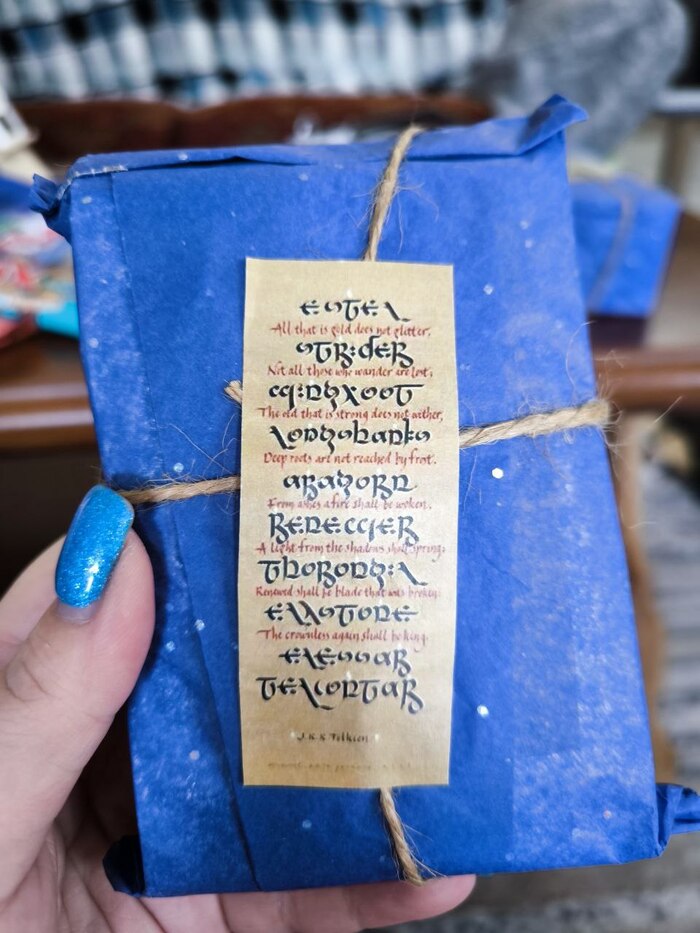 ESTEL
All that is gold does not glitter,
STRIDER
Not all those who wander are lost;
WINGFOOT
The old that is strong does not wither,
LONGSHANKS
Deep roots are not reached by frost.
ARAGORN
From ashes a fire shall be woken,
RENEWER
A light from the shadows shall spring;
THORONGIL
Renewed shall be blade that was broken:
ELFSTONE
The crownless again shall be king.
ELESSAR
TELCONTAR
J.R.R Tolkien